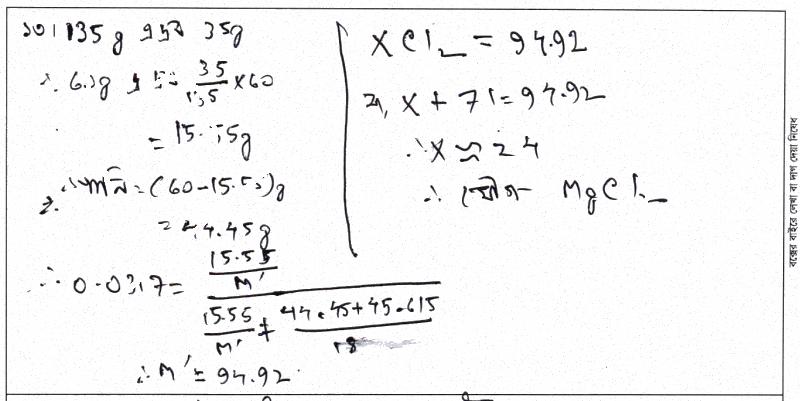 ১০। 135 g এ আছে 35g
∴ 60g এ আছে 35/135 × 60
= 15.55g
∴ পানি = (60 - 15.55)g
= 44.45g
∴ 0.0317 = (15.55/M') / (15.55/M' + (44.45+45.615)/18)
∴ M' = 94.92
XCl₂ = 94.92
বা, X + 71 = 94.92
∴ X ≈ 24
∴ যৌগ MgCl₂
বক্সের বাইরে লেখা বা দাগ দেয়া নিষেধ